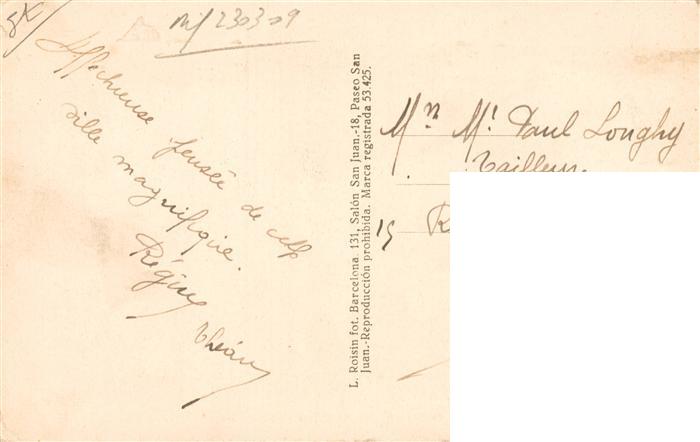 8€
230309
Affectueuse pensée de cette
ville magnifique.
Régine
L. Roisin fot. Barcelona. 131, Salón San Juan.-18, Paseo San
Juan.-Reproducción prohibida. Marca registrada 53.425.
Mr Paul Longhy
Tailleur
15 R